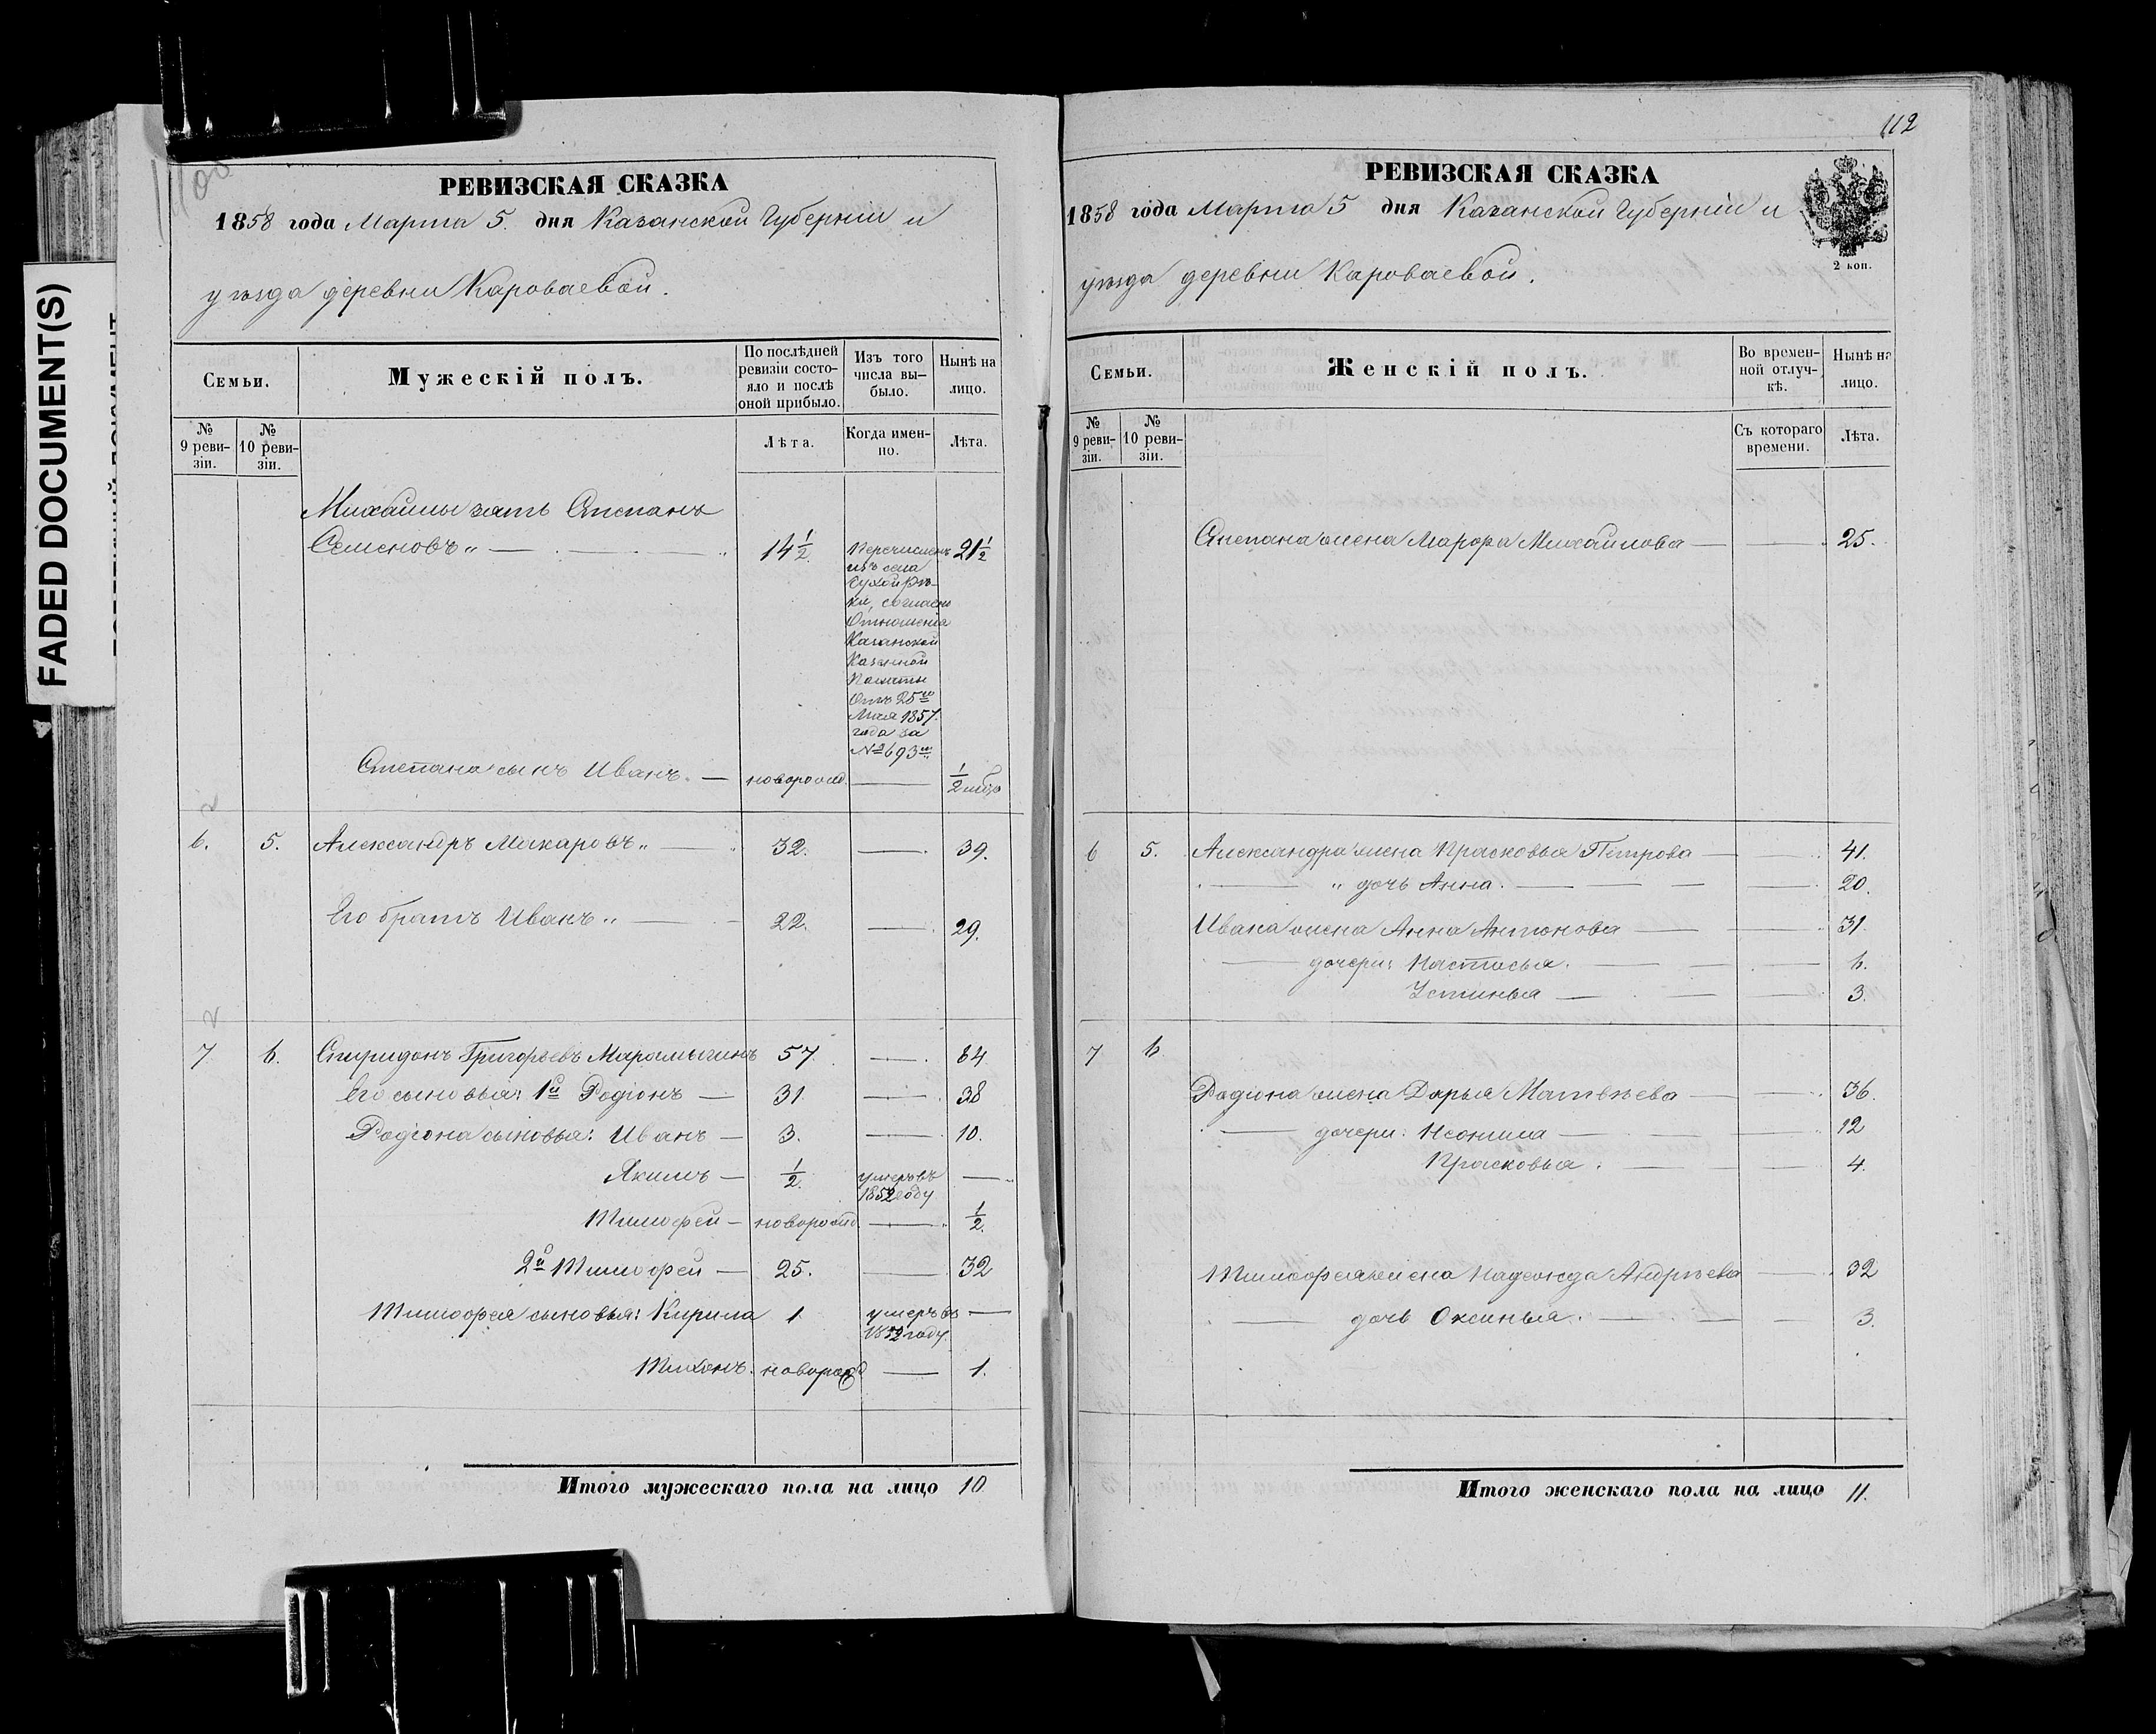 112
100
FADED DOCUMENT(S)
РЕВИЗСКАЯ СКАЗКА
1858 года Марта 5. дня Казанской Губерніи и
уѣзда деревни Кароваевой.
Семьи.
Мужескій полъ.
По послѣдней
ревизіи состо-
яло и послѣ
оной прибыло.
Изъ того
числа вы-
было.
Нынѣ на
лицо.
№
9 реви-
зіи.
№
10 реви-
зіи.
Лѣта.
Когда имен-
но.
Лѣта.
Михаилы зять Степанъ
Семеновъ „ 14 1/2 Перечисленъ 21 1/2
изъ села
Сухой рѣ-
ки, согласно
Отношенія
Казанской
Казенной
Палаты
Отъ 25го
Мая 1857.
года за
№ 2693м
Степана сынъ Иванъ. — новорожд. — 1/2
6. 5. Александръ Макаровъ „ — 32. — 39.
Его братъ Иванъ „ — 22. — 29.
7. 6. Спиридонъ Григорьевъ Марамыгинъ 57. — 64
Его сыновья: 1й Родіонъ — 31. — 38
Родіона сыновья: Иванъ — 3. — 10.
Якимъ — 1/2. умеръ въ —
1852 году
Тимофей — новорожд. — 1/2.
2й Тимофей — 25. — 32
Тимофея сыновья: Кирила 1 умеръ въ —
1852 году.
Тихонъ. новорожд — 1.
Итого мужескаго пола на лицо 10
РЕВИЗСКАЯ СКАЗКА
1858 года Марта 5 дня Казанской Губерніи и
уѣзда деревни Кароваевой.
2 коп.
Семьи.
Женскій полъ.
Во времен-
ной отлуч-
кѣ.
Нынѣ на
лицо.
№
9 реви-
зіи.
№
10 реви-
зіи.
Съ котораго
времени.
Лѣта.
Степана жена Марфа Михайлова — 25.
6 5. Александра жена Прасковья Петрова — 41.
— „ дочь Анна. — 20.
Ивана жена Анна Антонова — 31.
— дочери: Настасья. — 6.
Устинья — 3.
7 6
Родіона жена Дарья Матвѣева — 36.
— дочери: Неонила — 12
Прасковья. — 4.
Тимофея жена Надежда Андрѣева — 32
— дочь Оксинья. — 3.
Итого женскаго пола на лицо 11.